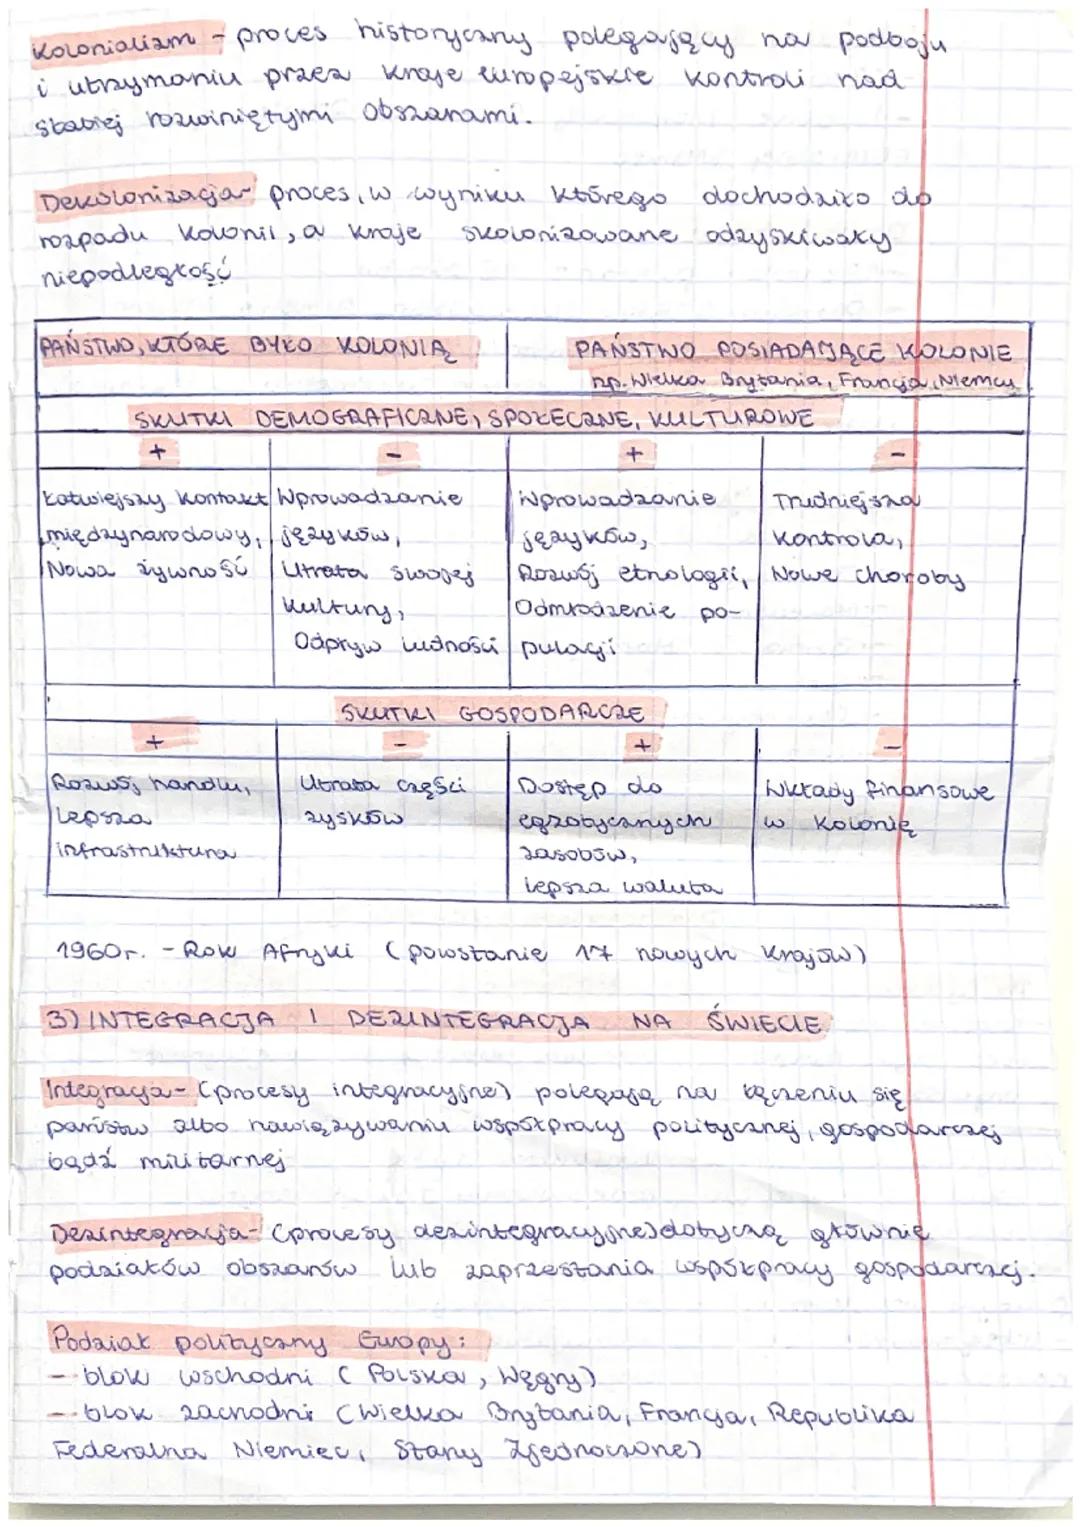 Kolonializm - proces historyczny polegający na podboju
i utrzymaniu przez kraje europejskie kontroli nad
słabiej rozwiniętymi obszarami.
Dekolonizacja- proces, w wyniku którego dochodziło do
rozpadu kolonii, a kraje skolonizowane odzyskiwały
niepodległość
PAŃSTWO, KTÓRE BYŁO KOLONIĄ
PAŃSTWO POSIADAJĄCE KOLONIE
np. Wielka Brytania, Francja, Niemcy
SKUTKI DEMOGRAFICZNE, SPOŁECZNE, KULTUROWE
+ - + -
Łatwiejszy kontakt
międzynarodowy,
Nowa żywność
Wprowadzanie
języków,
Utrata swojej
kultury,
Odpływ ludności
Wprowadzanie
języków,
Rozwój etnologii,
Odmłodzenie po-
pulacji
Trudniejsza
kontrola,
Nowe choroby
SKUTKI GOSPODARCZE
+ - + -
Rozwój handlu,
Lepsza
infrastruktura
Utrata części
zysków
Dostęp do
egzotycznych
zasobów,
lepsza waluta
Wkłady finansowe
w kolonię
1960r. - Rok Afryki (powstanie 17 nowych krajów)
3) INTEGRACJA I DEZINTEGRACJA NA ŚWIECIE
Integracja- (procesy integracyjne) polegają na łączeniu się
państw albo nawiązywaniu współpracy politycznej, gospodarczej
bądź militarnej
Dezintegracja- (procesy dezintegracyjne) dotyczą głównie
podziałów obszarów lub zaprzestania współpracy gospodarczej.
Podział polityczny Europy:
- blok wschodni (Polska, Węgry)
- blok zachodni (Wielka Brytania, Francja, Republika
Federalna Niemiec, Stany Zjednoczone)